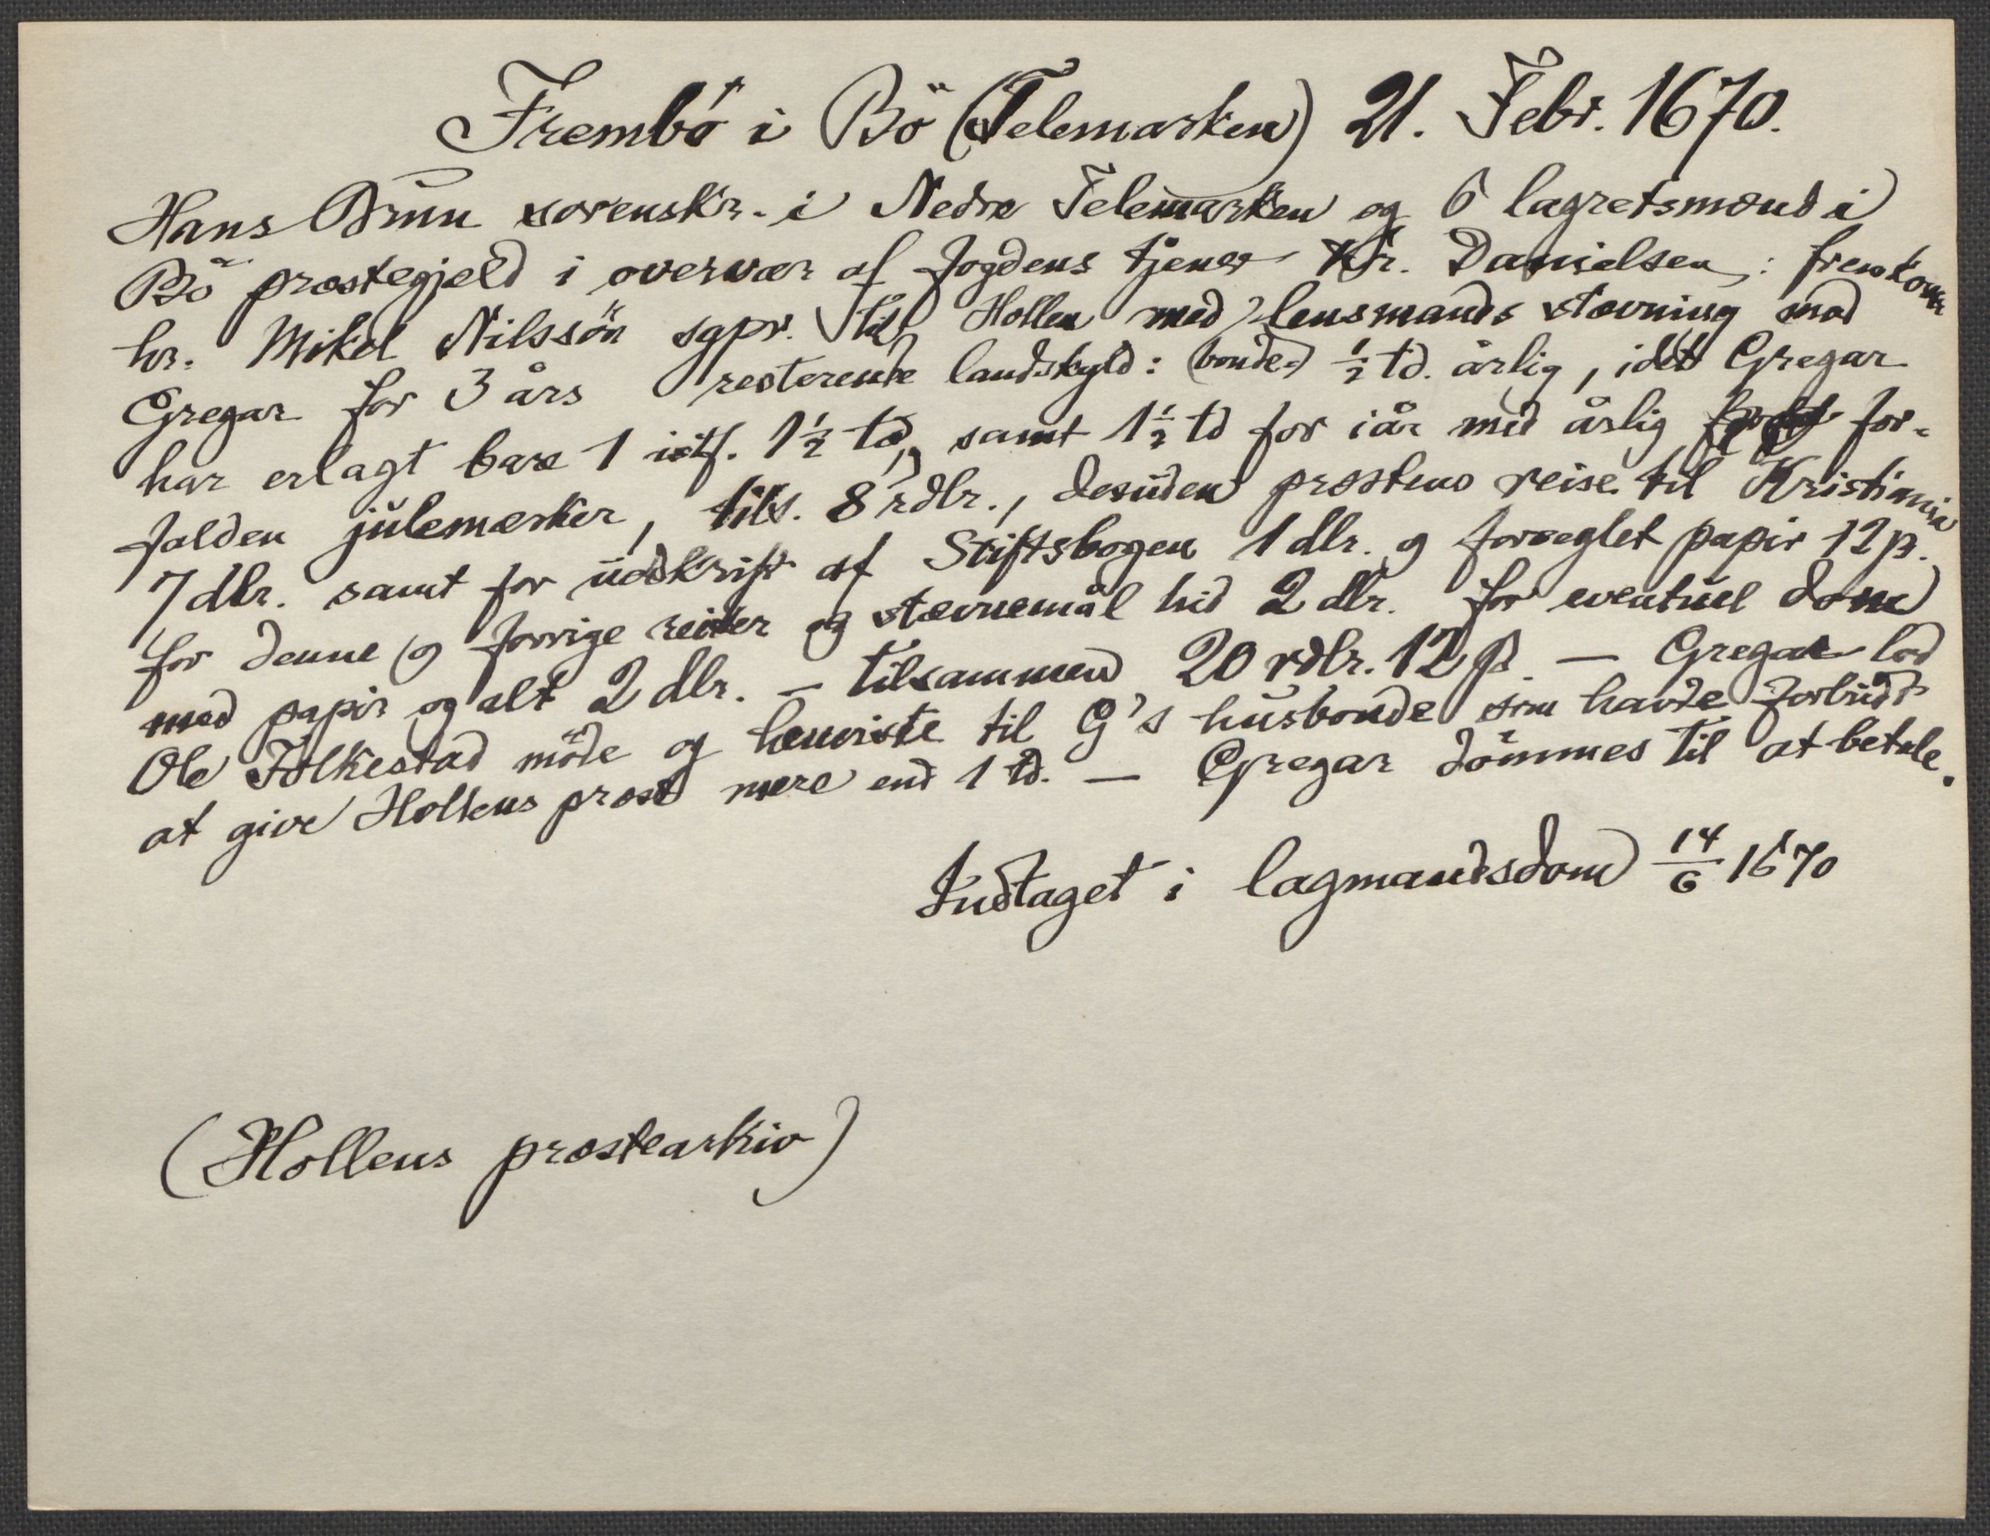 Frembö i Bö (Telemarken) 21. Febr. 1670.
Hans Brun sorenskr. i Nedre Telemarken og 6 lagretsmænd i
Bö prestegjeld i overvær af fogdens tjener Kr. Danielsen: fremkom
hr. Mikel Nilssön sgpr. til Hollen med lensmands stævning mod
Gregar for 3 års resterende landskyld: (bonde) ½ td. årlig, idet Gregar
har erlagt bare 1 istf. 1½ td, samt 1½ td for iår med årlig for-
falden julemærker, tils. 8 rdlr., desuden prostens reise til Kristiania
7 dlr. samt for udskrift af Stiftsbogen 1 dlr. og forseglet papir 12 β.
for denne og forrige reiser og stævnemål hid 2 dlr. for eventuel dom
med papir og alt 2 dlr. — tilsammen 20 rdlr. 12 β — Gregar lod
Ole Folkestad möde og henviste til G's husbonde som havde forbudt
at give Hollens prost mere end 1 td. — Gregar dömmes til at betale.
Indtaget i lagmandsdom 14/6 1670
(Hollens prostearkiv)